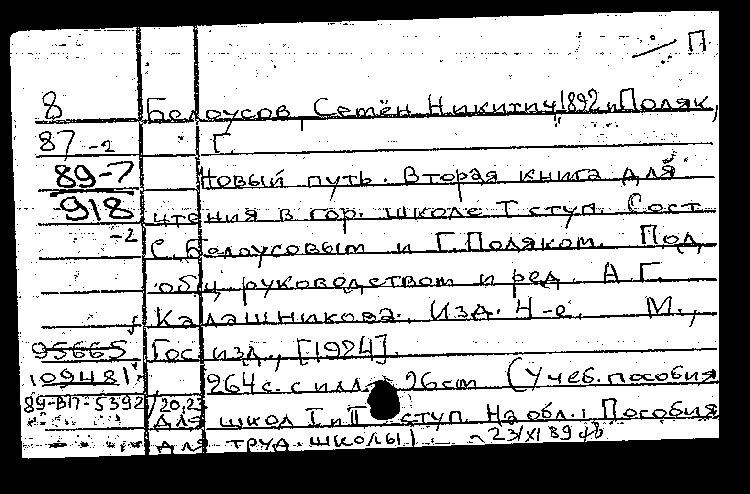 П
8 Белоусов, Семён Никитич, 1892 и Поляк,
87-2 Г.
89-7 Новый путь. Вторая книга для
918 чтения в гор. школе I ступ. Сост
-2 С. Белоусовым и Г. Поляком. Под
общ. руководством и ред. А Г.
Калашникова. Изд. 4-е. М.,
95665 Гос изд., [1924].
109481 264 с. с илл. 26 cm (Учеб. пособия
89-В17-5392 /20,23 для школ I и II ступ. На обл.: Пособия
для труд. школы) 23/XI 89